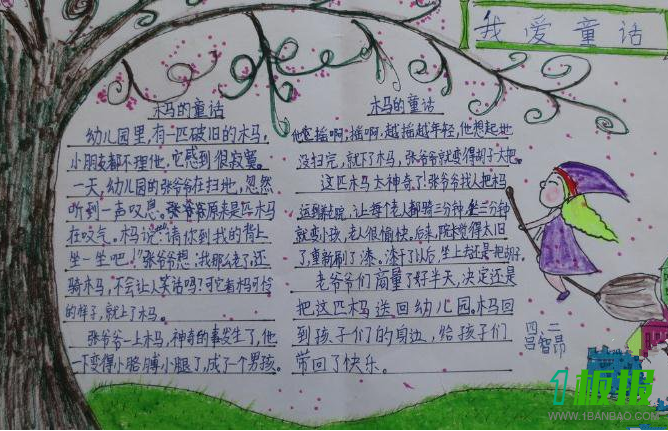 我爱童话
木马的童话
幼儿园里,有一匹破旧的木马,
小朋友都不理他,它感到很寂寞。
一天,幼儿园的张爷爷在扫地,忽然
听到一声叹息。张爷爷原来是匹木马
在叹气。木马说:"请你到我的背上
坐一坐吧!"张爷爷想:我那么老了,还
骑木马,不会让人笑话吗?可它看木马可怜
的样子,就上了木马。
张爷爷一上木马,神奇的事发生了,他
一下变得小胳膊小腿了,成了一个男孩。
木马的童话
他摇啊,摇啊,越摇越年轻,他想起地
没扫完,就下了木马,张爷爷就变得胡子大把。
这匹木马太神奇了!张爷爷找人把木马
运到院,让每个老人都骑三分钟,坐三分钟
就变小孩,老人很愉快。后来,木太旧
了,重新刷了漆。漆干了以后,坐上去还是把胡子。
老爷爷们商量了好半天,决定还是
把这匹木马送回幼儿园。木马回
到孩子们的身边,给孩子们
带回了快乐。
四、二
吕智昂
1板报
WWW.1BANBAO.COM